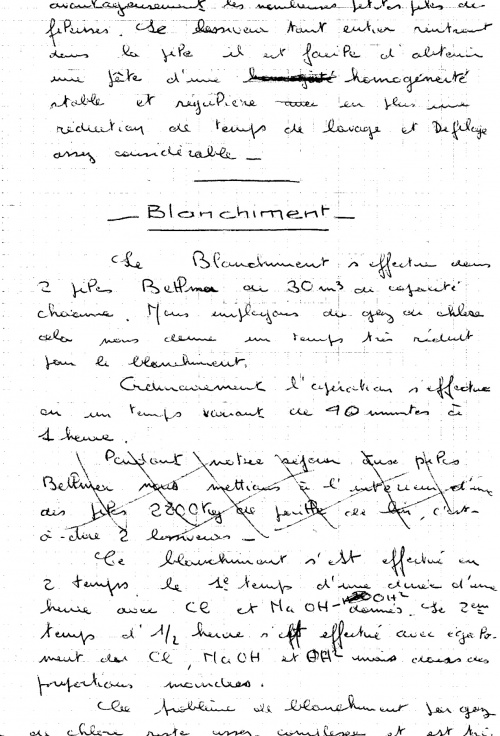 avantageusement les nombreuses petites piles de
fileuses. Le lessiveur tout entier rentrant
dans la pile il est facile d'obtenir
une pâte d'une homogénéité
stable et régulière avec en plus une
réduction de temps de lavage et Defilage
assez considérable _
_ Blanchiment _
Le Blanchiment s'effectue dans
2 piles Bellmer de 30 m³ de capacité
chacune. Nous employons du gaz de chlore
cela nous donne un temps très réduit
pour le blanchiment.
Ordinairement l'opération s'effectue
en un temps variant de 40 minutes à
1 heure.
Pendant notre séjour aux piles
Bellmer nous mettions à l'intérieur d'une
des piles 2200 Kg de de lin, c'est-
à-dire 2 lessiveurs _
Ce blanchiment s'est effectué en
2 temps. le 1e temps d'une durée d'une
heure avec Cl et NaOH Le 2em
temps d'1/2 heure s'est effectué avec égale-
ment du Cl, NaOH et mais dans des
proportions moindres.
Le problème de blanchiment par gaz
de chlore reste assez complexe et est très